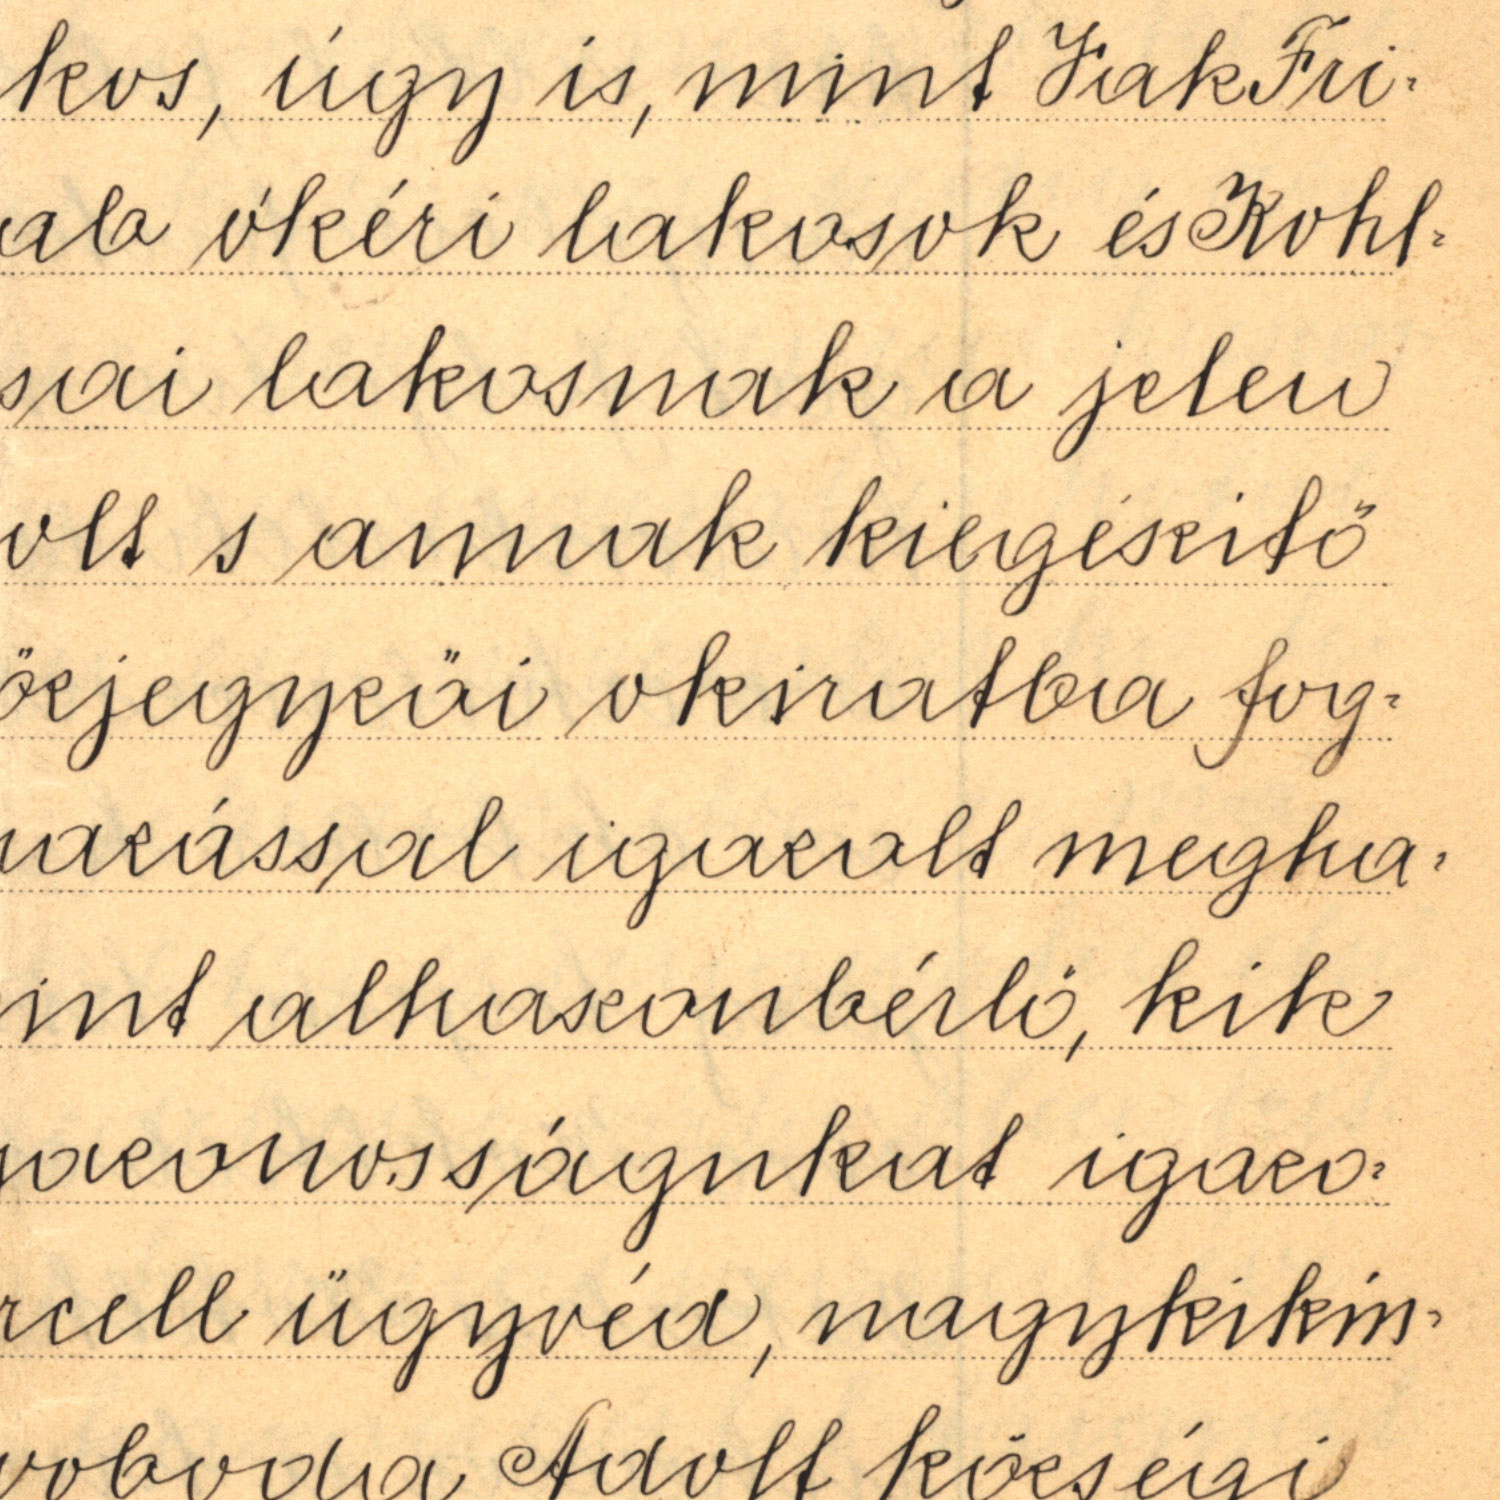 kos, úgy is, mint Fak Fri-
ab ókéri lakosok és Kohl-
sai lakosnak a jelen
volt s annak kiegészitő
özjegyzői okiratba fog-
mazással igazolt megha-
mint alhaszonbérlő, kik
nazonosságukat igazo-
rcell ügyvéd, nagykikin-
voboda Adolf községi